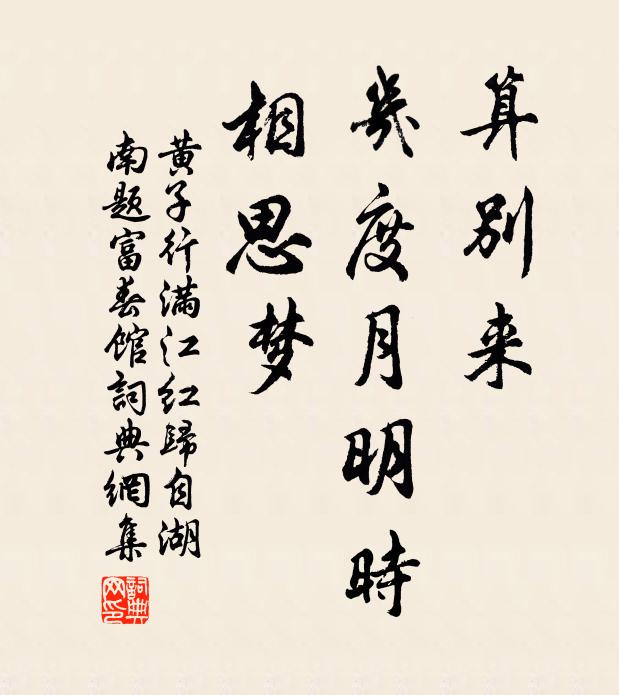 算别来
幾度月明時
相思梦
黄子行满江红歸自湖
南题富春馆詞典網集
詞典网印